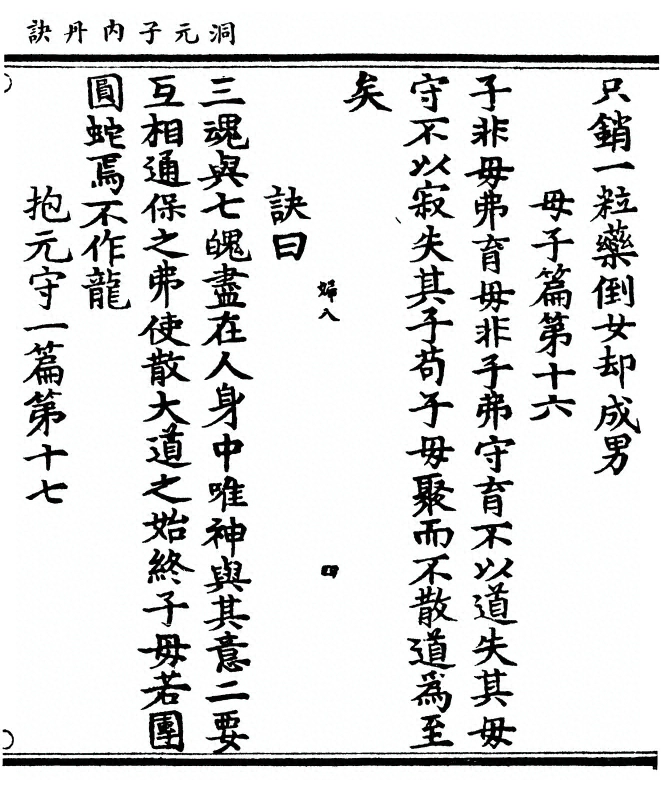 洞元子內丹訣
只銷一粒藥倒女却成男
母子篇第十六
子非母弗育母非子弗守育不以道失其母
守不以寂失其子苟子母聚而不散道爲至
矣
婦八
四
訣曰
三魂與七魄盡在人身中唯神與其意二要
互相通保之弗使散大道之始終子母若團
圓蛇焉不作龍
抱元守一篇第十七